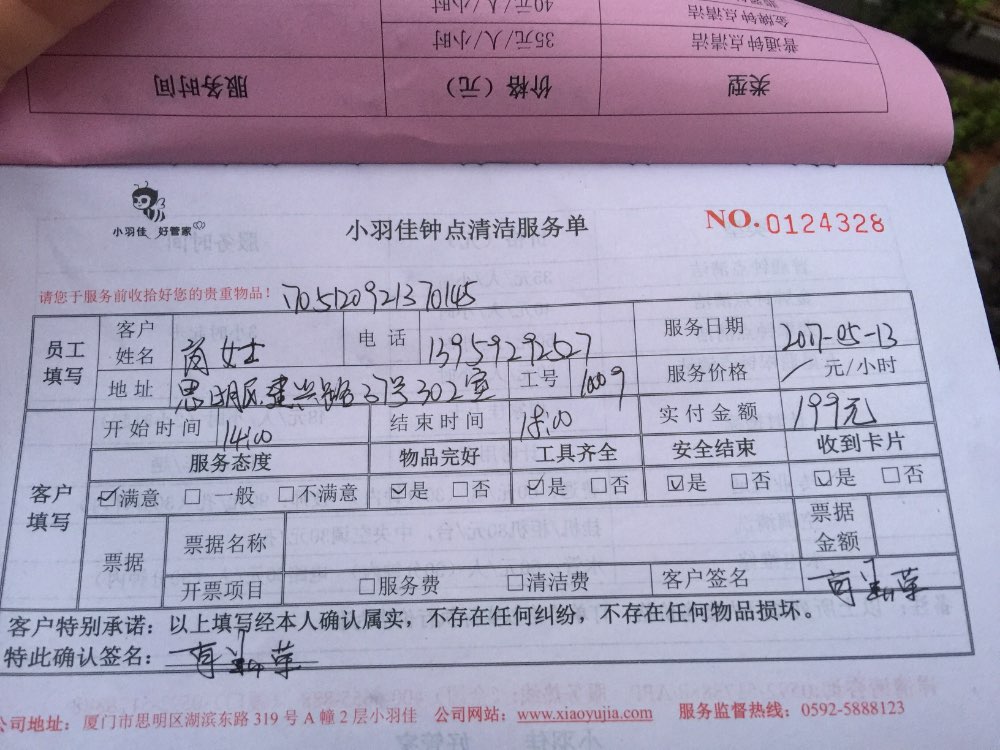 40元/人/小时
金牌钟点清洁
35元/人/小时
普通钟点清洁
服务时间
价格（元）
类型
小羽佳 好管家
小羽佳钟点清洁服务单
NO.0124328
请您于服务前收拾好您的贵重物品！
170512092137 0145
员工填写
客户姓名
女士
电话
13959292527
服务日期
2017-05-13
地址
思明区建兴路37号302室
工号
10009
服务价格
/ 元/小时
客户填写
开始时间
14:00
结束时间
18:00
实付金额
199元
服务态度
物品完好
工具齐全
安全结束
收到卡片
☑满意 □一般 □不满意
☑是 □否
☑是 □否
☑是 □否
☑是 □否
票据
票据名称
票据金额
开票项目
□服务费 □清洁费
客户签名
客户特别承诺：以上填写经本人确认属实，不存在任何纠纷，不存在任何物品损坏。
特此确认签名：
公司地址：厦门市思明区湖滨东路 319 号 A 幢 2 层小羽佳 公司网站：www.xiaoyujia.com 服务监督热线：0592-5888123